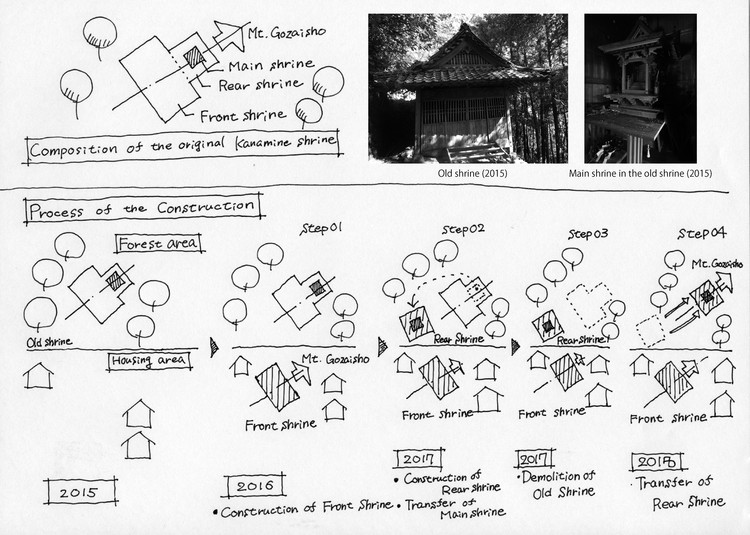 Mt. Gozaisho
Main shrine
Rear shrine
Front shrine
Composition of the original Kanamine shrine
Old shrine (2015)
Main shrine in the old shrine (2015)
Process of the Construction
Forest area
Old shrine
Housing area
2015
Step01
Mt. Gozaisho
Front shrine
2016
• Construction of Front Shrine
Step02
Rear Shrine
Front shrine
2017
• Construction of
Rear shrine
• Transfer of
Main shrine
Step03
Rear shrine
Front shrine
2017
• Demolition of
Old Shrine
Step04
Mt. Gozaisho
Front shrine
2018
· Transfer of
Rear Shrine